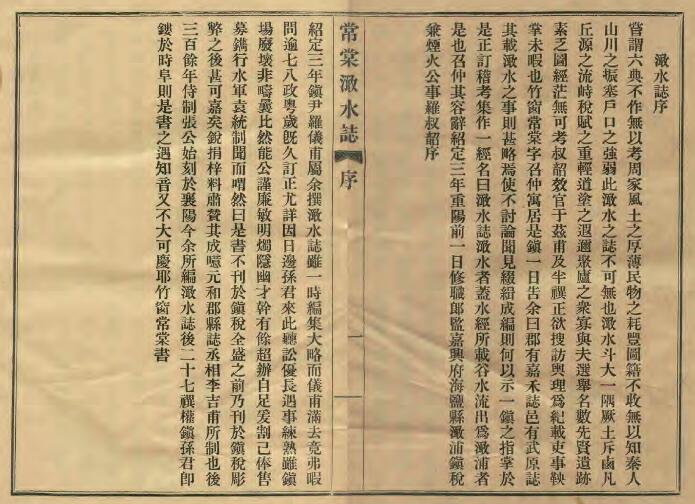 澉水誌序
嘗謂六典不作無以考周家風土之厚薄民物之耗豐圖籍不收無以知秦人
山川之阨塞戶口之強弱此澉水之誌不可無也澉水斗大一隅厥土斥鹵凡
丘源之流峙稅賦之重輕道塗之遐邇聚廬之衆寡與夫選舉名數先賢遺跡
素乏圖經茫無可考叔韶效官于茲甫及半禩正欲搜訪輿理爲紀載吏事鞅
掌未暇也竹窗常棠字召仲寓居是鎮一日告余曰郡有嘉禾誌邑有武原誌
其載澉水之事則甚略焉使不討論聞見綴緝成編則何以示一鎮之指掌於
是正訂稽考集作一經名曰澉水誌澉水者蓋水經所載谷水流出爲澉浦者
是也召仲其容辭紹定三年重陽前一日修職郎監嘉興府海鹽縣澉浦鎮稅
兼煙火公事羅叔韶序
常棠澉水誌
序
一
紹定三年鎮尹羅儀甫屬余撰澉水誌雖一時編集大略而儀甫滿去竟弗暇
問逾七八政粵歲旣久訂正尤詳因日邊孫君來此聽訟優長遇事練熟雖鎮
場廢壞非疇曩比然能公謹廉敏明燭隱幽才幹有餘趨辦自足爰割己俸售
募鐫行水軍袁統制聞而喟然曰是書不刊於鎮稅全盛之前乃刊於鎮稅彫
弊之後甚可嘉矣銳捐梓料肅贊其成噫元和郡縣誌丞相李吉甫所制也後
三百餘年侍制張公始刻於襄陽今余所編澉水誌後二十七禩權鎮孫君卽
鏤於時阜則是書之遇知音又不大可慶耶竹窗常棠書